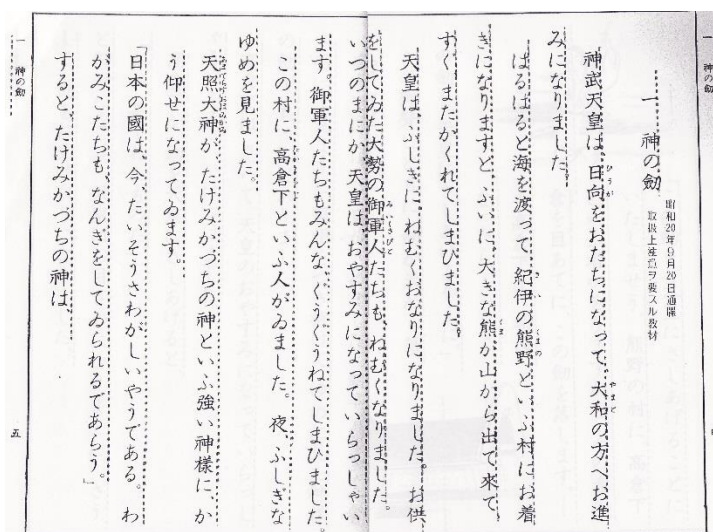 一 神の劒
一 神の劒
昭和20年9月20日通牒
取扱上注意ヲ要スル教材
神武天皇は、日向をおたちになって、大和の方へお進
みになりました。
はるばると海を渡って、紀伊の熊野といふ村にお着
きになりますと、ふいに、大きな熊が山から出て來て、
すぐ、またかくれてしまひました。
天皇は、ふしぎに、ねむくおなりになりました。お供
をしてゐた大勢の御軍人たちも、ねむくなりました。
いつのまにか、天皇は、おやすみになっていらっしゃい
ます。御軍人たちもみんな、ぐうぐうねてしまひました。
この村に、高倉下といふ人がゐました。夜、ふしぎな
ゆめを見ました。
天照大神が、たけみかづちの神といふ強い神樣に、か
う仰せになってゐます。
「日本の國は、今、たいそうさわがしいやうである。わ
がみこたちも、なんぎをしてゐられるであらう。」
すると、たけみかづちの神は、
一 神の劒
五